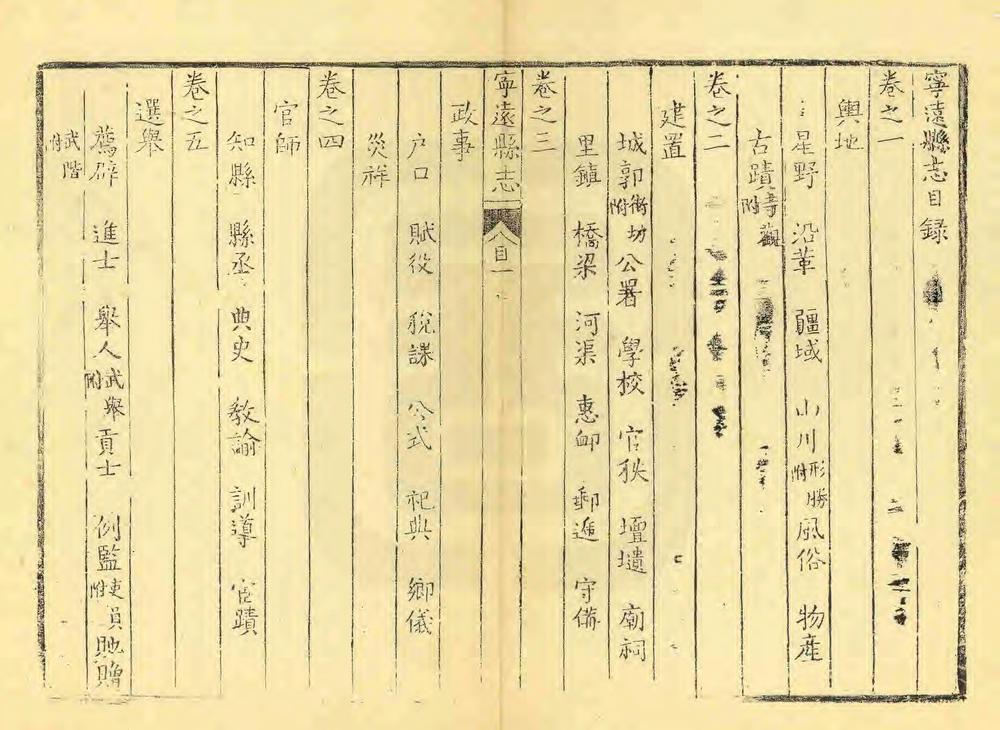 寧遠縣志目録
卷之一
輿地
星野 沿革 疆域 山川形勝附 風俗 物產
古蹟寺觀附
卷之二
建置
城郭街坊附 公署 學校 官秩 壇壝 廟祠
里鎮 橋梁 河渠 惠卹 郵逓 守備
卷之三
寧遠縣志 目一
政事
户口 賦役 稅課 公式 祀典 鄉儀
災祥
卷之四
官師
知縣 縣丞 典史 教諭 訓導 宦蹟
卷之五
選舉
薦辟 進士 舉人武舉附 貢士 例監吏員附 貤贈
武階附